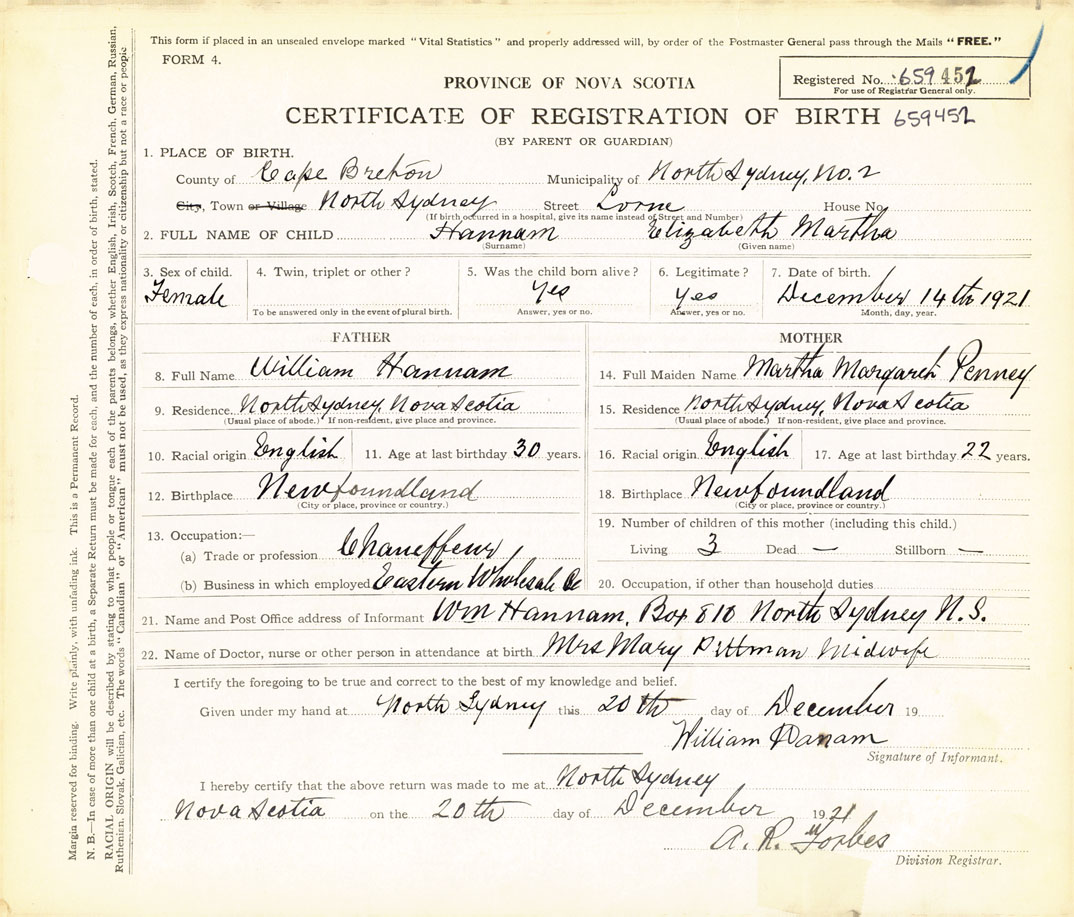 This form if placed in an unsealed envelope marked "Vital Statistics" and properly addressed will, by order of the Postmaster General pass through the Mails "FREE."
FORM 4.
Registered No. 659452
For use of Registrar General only.
PROVINCE OF NOVA SCOTIA
CERTIFICATE OF REGISTRATION OF BIRTH 659452
(BY PARENT OR GUARDIAN)
1. PLACE OF BIRTH.
County of Cape Breton Municipality of North Sydney, No. 2
City, Town or Village North Sydney Street Lorne House No.
(If birth occurred in a hospital, give its name instead of Street and Number)
2. FULL NAME OF CHILD Hannam Elizabeth Martha
(Surname) (Given name)
3. Sex of child. 4. Twin, triplet or other? 5. Was the child born alive? 6. Legitimate? 7. Date of birth.
Female Yes Yes December 14th 1921
To be answered only in the event of plural birth. Answer, yes or no. Answer, yes or no. Month, day, year.
FATHER MOTHER
8. Full Name William Hannam 14. Full Maiden Name Martha Margaret Penney
9. Residence North Sydney, Nova Scotia 15. Residence North Sydney, Nova Scotia
(Usual place of abode.) If non-resident, give place and province. (Usual place of abode.) If non-resident, give place and province.
10. Racial origin English 11. Age at last birthday 30 years. 16. Racial origin English 17. Age at last birthday 22 years.
12. Birthplace Newfoundland 18. Birthplace Newfoundland
(City or place, province or country.) (City or place, province or country.)
13. Occupation:— 19. Number of children of this mother (including this child.)
(a) Trade or profession Chaueffeur Living 3 Dead — Stillborn —
(b) Business in which employed Eastern Wholesale Co 20. Occupation, if other than household duties
21. Name and Post Office address of Informant Wm Hannam, Box 810 North Sydney N.S.
22. Name of Doctor, nurse or other person in attendance at birth Mrs Mary Pittman Midwife
I certify the foregoing to be true and correct to the best of my knowledge and belief.
Given under my hand at North Sydney this 20th day of December 19
William Hanam
Signature of Informant.
I hereby certify that the above return was made to me at North Sydney
Nova Scotia on the 20th day of December 1921
A. R. Forbes
Division Registrar.
Margin reserved for binding. Write plainly, with unfading ink. This is a Permanent Record.
N. B.—In case of more than one child at a birth, a Separate Return must be made for each, and the number of each, in order of birth, stated.
RACIAL ORIGIN will be described by stating to what people or tongue each of the parents belongs, whether English, Irish, Scotch, French, German, Russian,
Ruthenian, Slovak, Galician, etc. The words "Canadian" or "American" must not be used, as they express nationality or citizenship but not a race or people